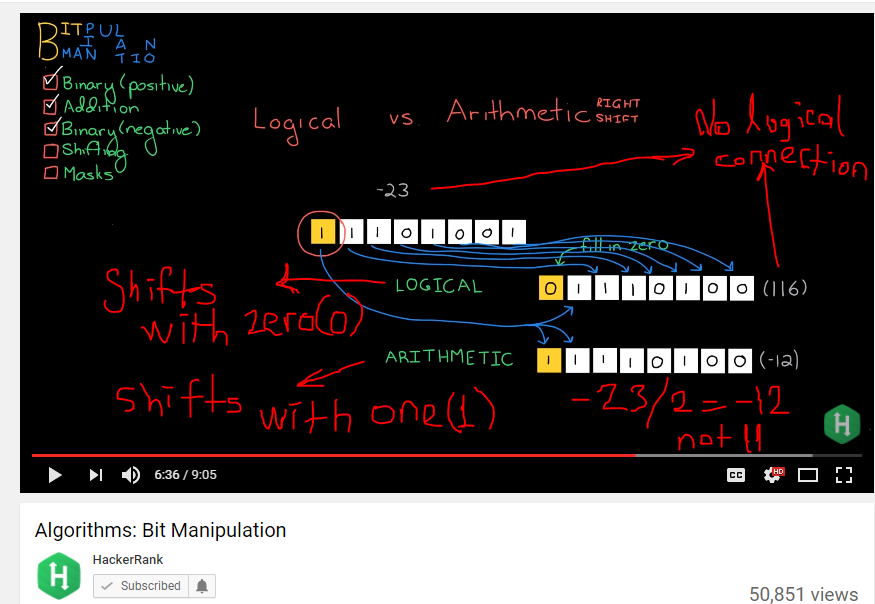 BITPUL
I A N
MAN TIO
Binary (positive)
Addition
Binary (negative)
Shifting
Masks
Logical vs. Arithmetic RIGHT SHIFT
No logical
connection
-23
1 1 1 0 1 0 0 1
fill in zero
LOGICAL 0 1 1 1 0 1 0 0 (116)
Shifts
with zero(0)
ARITHMETIC 1 1 1 1 0 1 0 0 (-12)
shifts
with one(1)
-23/2 = -12
not 11
H
6:36 / 9:05
CC
HD
Algorithms: Bit Manipulation
H
HackerRank
Subscribed
50,851 views